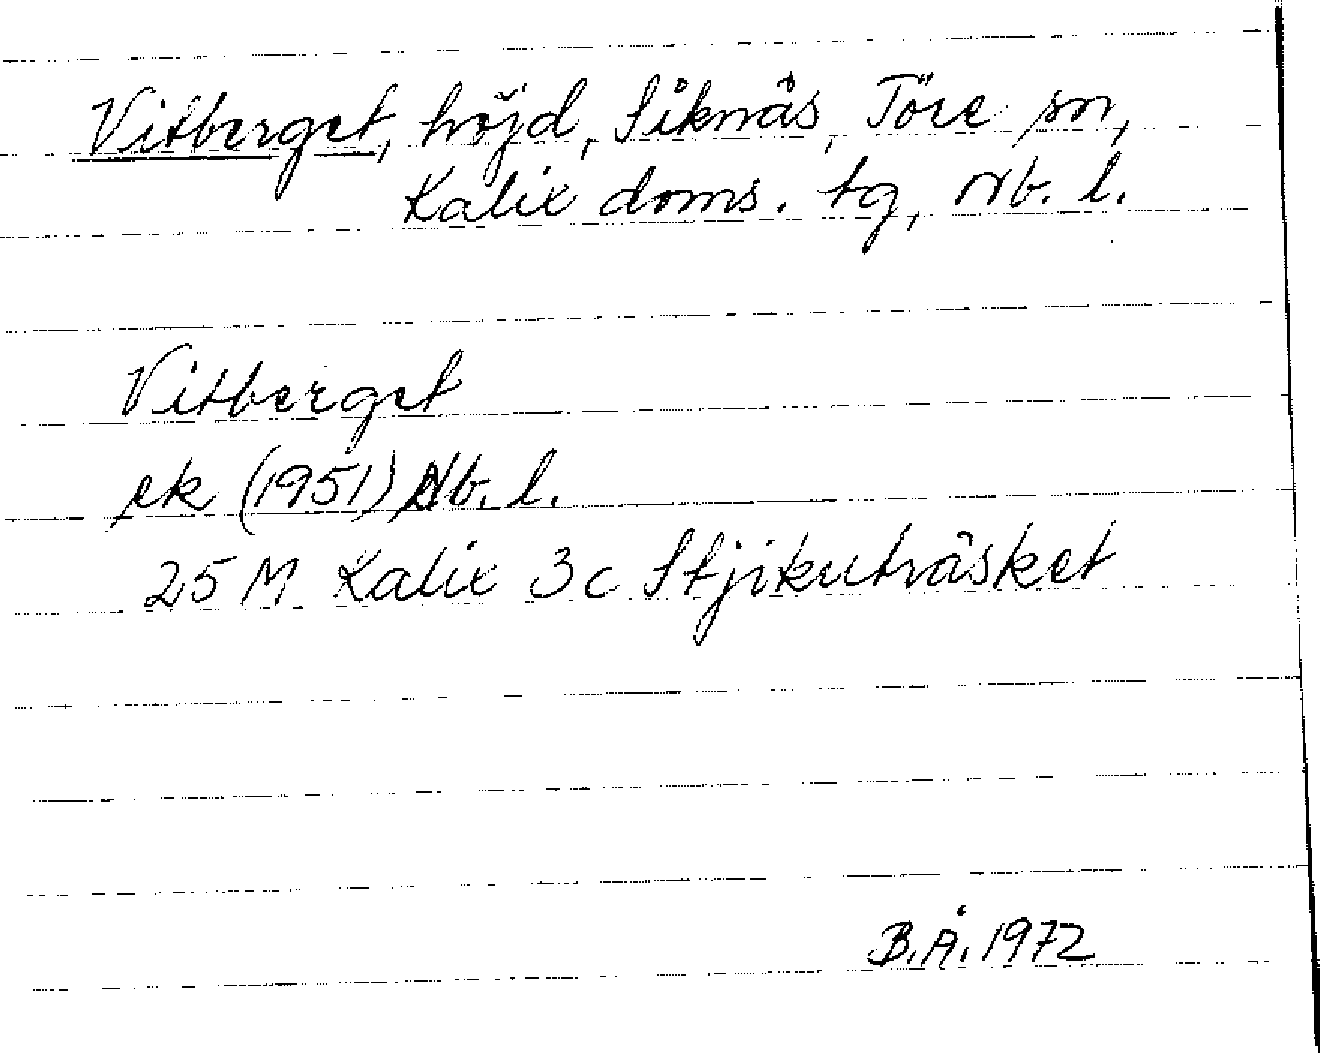 Vitberget, höjd, Siknäs, Töre sn,
Kalix doms. tg, Nb. l.
Vitberget
ek (1951) Nb. l.
25 M Kalix 3c Stjikuträsket
B.Å. 1972